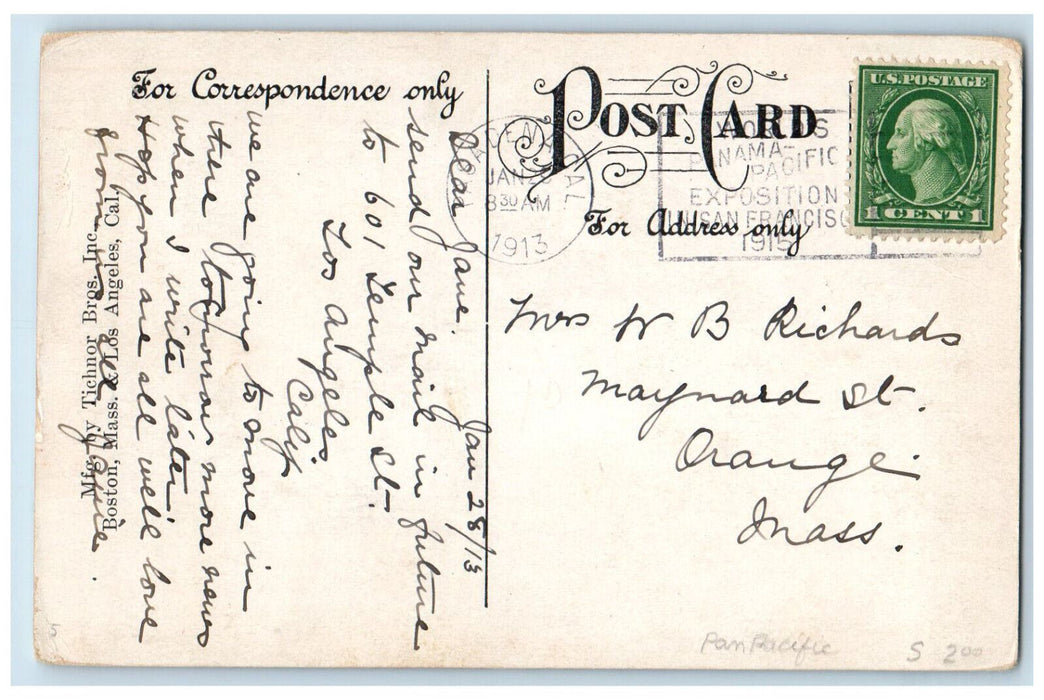 For Correspondence only
POST CARD
For Address only
U.S. POSTAGE
1 CENT 1
CAL
JAN 28
8 30 AM
1913
WORLD'S
PANAMA-
PACIFIC
EXPOSITION
IN SAN FRANCISCO
1915
Jan 28/13
Dear Jane.
send our mail in future
to 601 Temple St.
Los Angeles
Calif
we are going to move in
there tomorrow more news
when I write later
Hope you are all well love
from
Mrs W B Richards
Maynard St.
Orange
Mass.
Mfg. by Tichnor Bros. Inc.,
Boston, Mass. & Los Angeles, Cal.
Pan Pacific
S 2.00
5